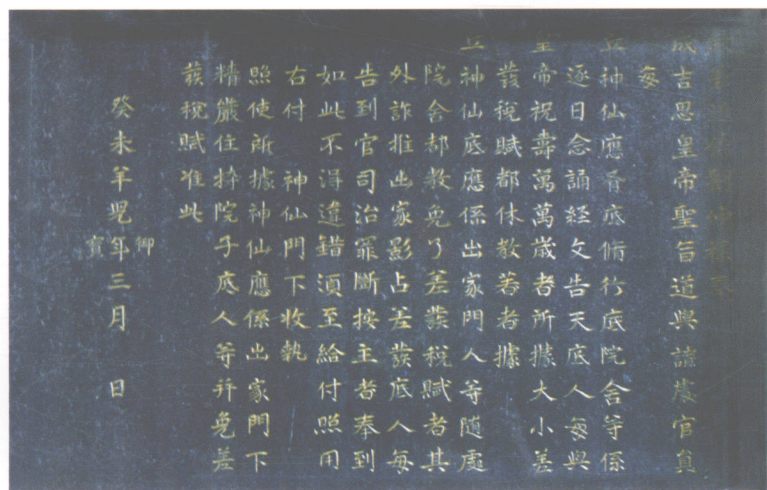 成吉思皇帝聖旨道與諸處官員
每
丘神仙應有底脩行底院舍等係
逐日念誦經文告天底人每與
皇帝祝壽萬萬歲者所據大小差
發稅賦都休教著者據
丘神仙底應係出家門人等隨處
院舍都教免了差發稅賦者其
外詐推出家影占差發底人每
告到官司治罪斷按主者奉到
如此不得違錯須至給付照用
右付 神仙門下收執
照使所據神仙應係出家門下
精嚴住持院子底人等并免差
發稅賦准此
癸未羊兒年三月 日
御
寶